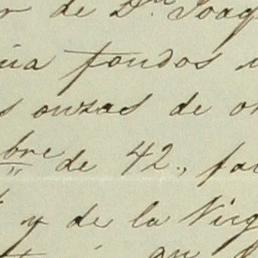 r de Dn Joaq
úa fondos
s onzas de o
bre de 42., fa
y de la Virg